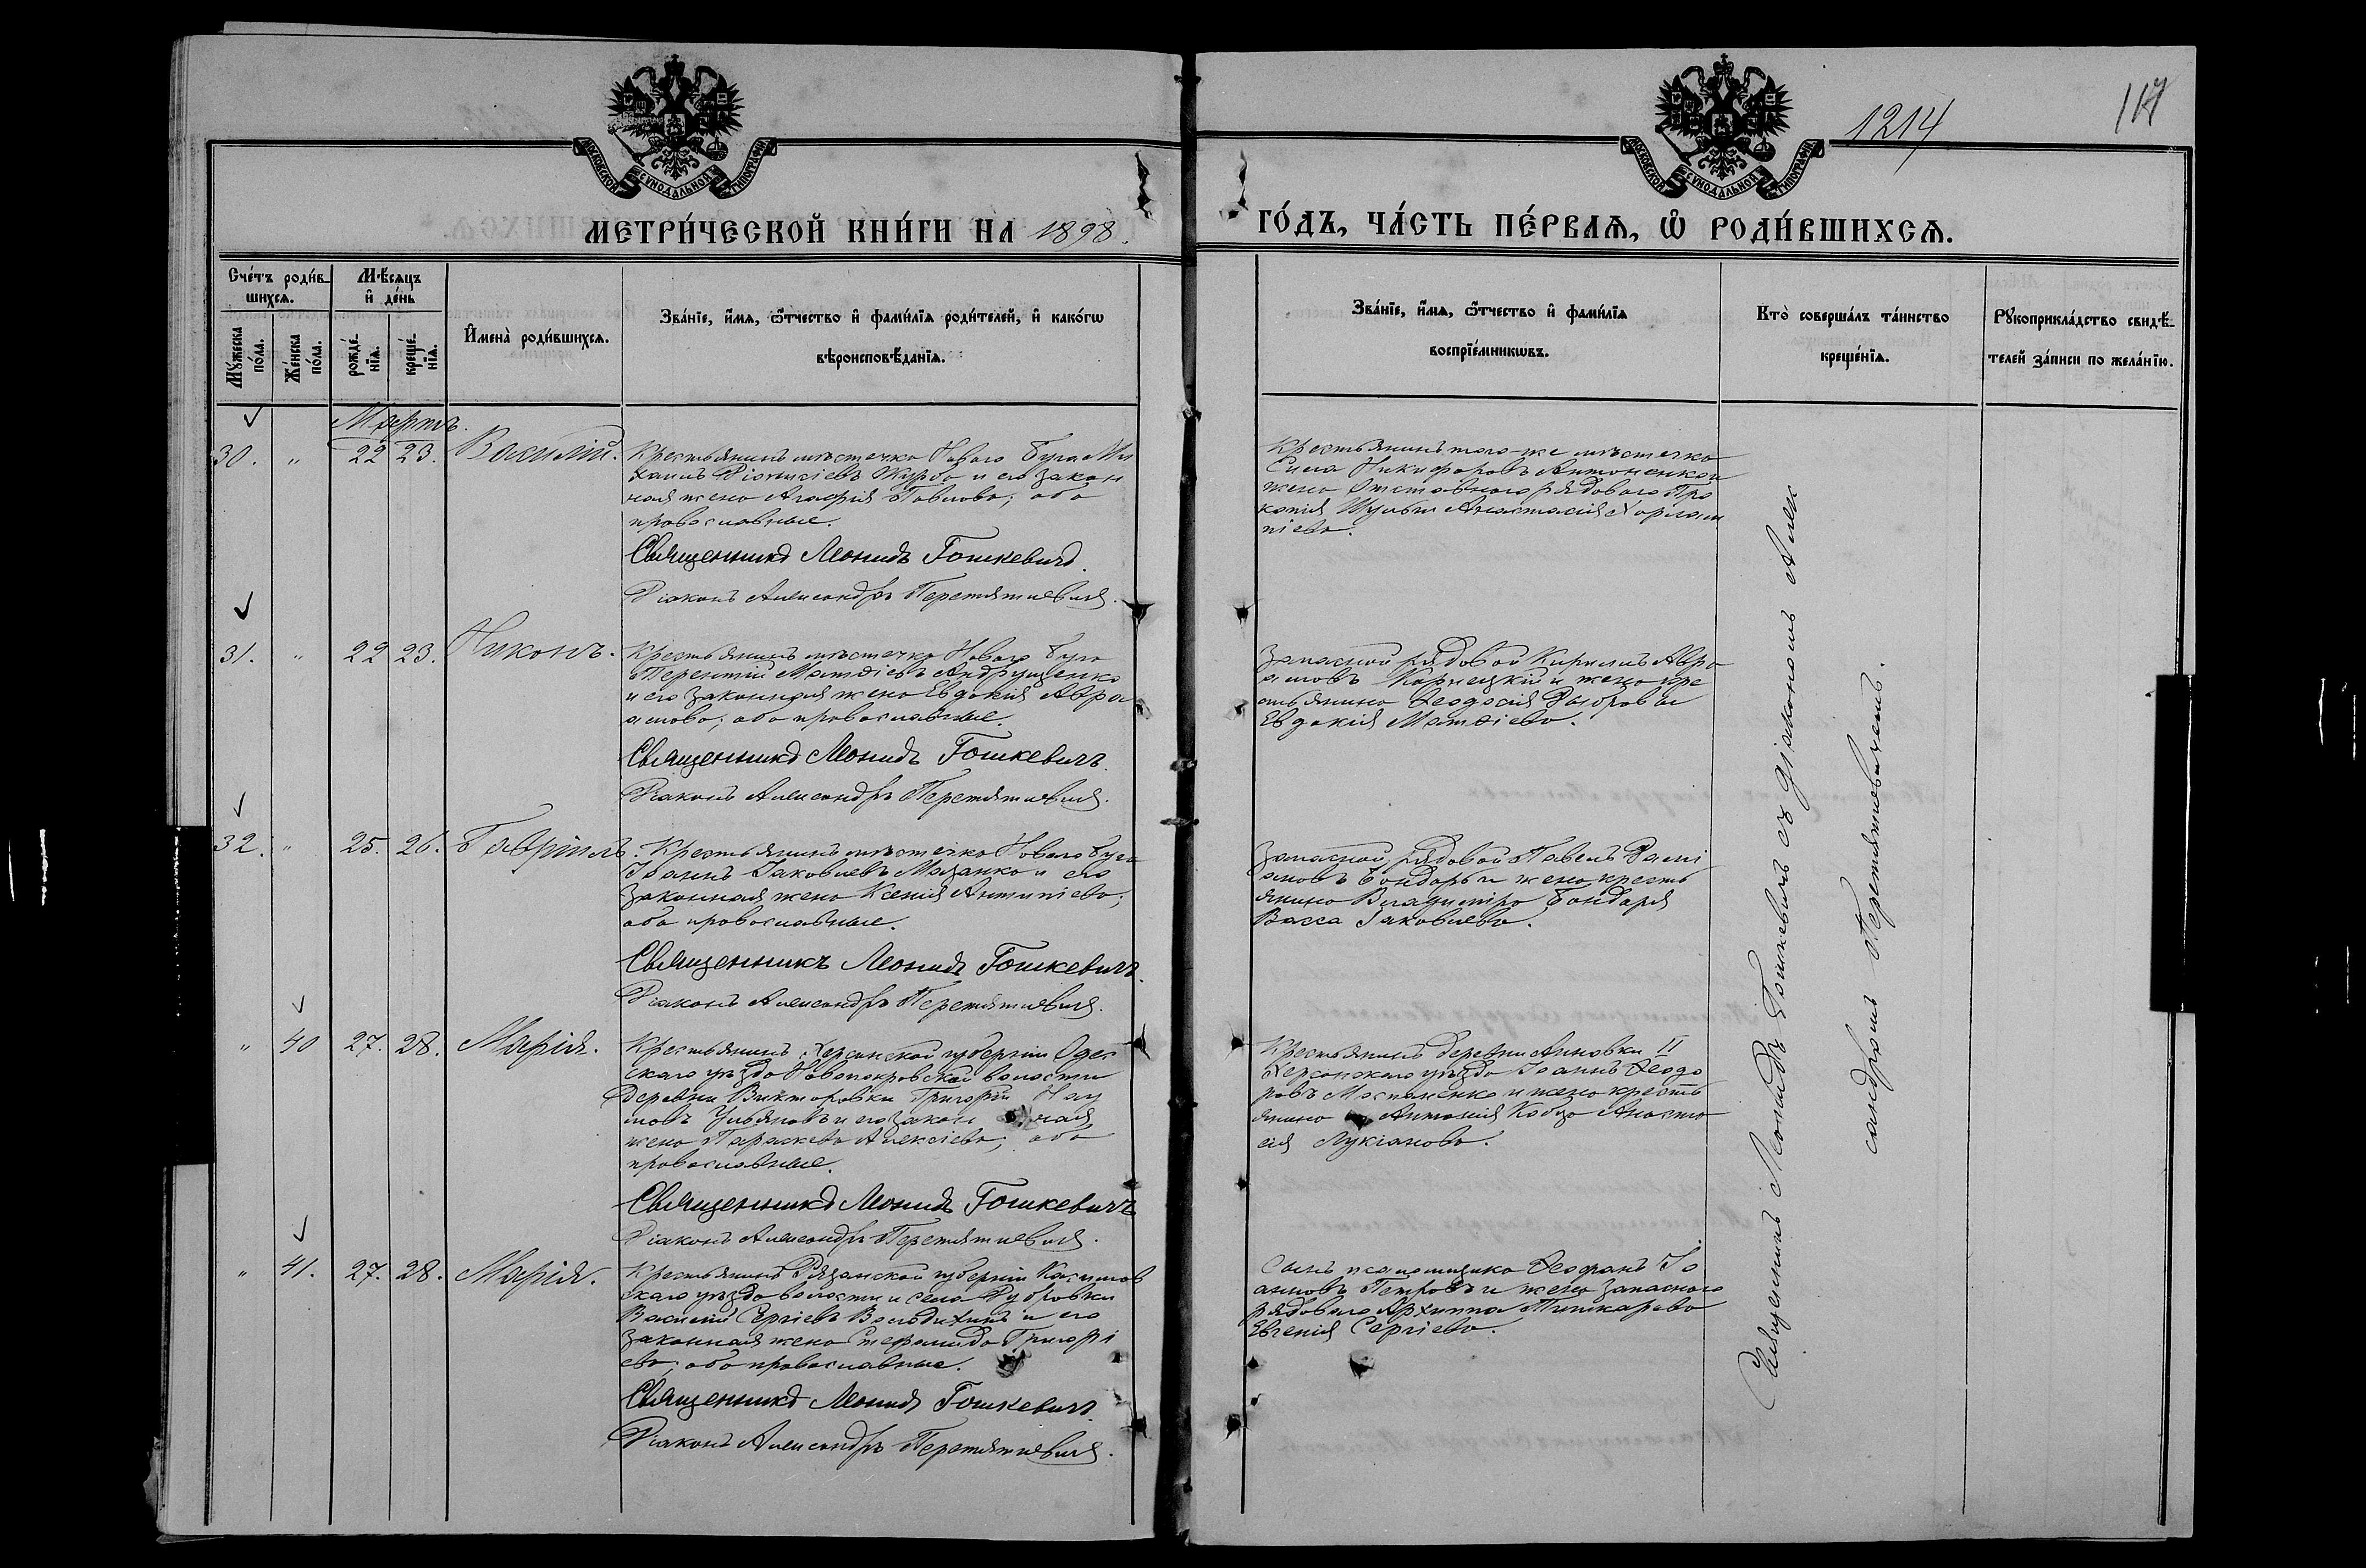 1214
117
МОСКОВСКОЙ СѴНОДАЛЬНОЙ ТИПОГРАФІИ
МОСКОВСКОЙ СѴНОДАЛЬНОЙ ТИПОГРАФІИ
МЕТРИ́ЧЕСКОЙ КНИ́ГИ НА 1898.
ГО́ДЪ, ЧА́СТЬ ПЕ́РВАѦ, Ѽ РОДИ́ВШИХСѦ.
Сче́тъ роди́в-
шихсѧ.
Мѣ́сѧцъ
и҆ де́нь
Мꙋ́жеска
по́ла.
Же́нска
по́ла.
рожде́-
нїѧ.
креще́-
нїѧ.
И҆мена̀ роди́вшихсѧ.
Зва́нїе, и҆́мѧ, ѻ҆́тчество и҆ фами́лїѧ роди́телей, и҆ како́гѡ
вѣроисповѣ́данїѧ.
Зва́нїе, и҆́мѧ, ѻ҆́тчество и҆ фами́лїѧ
воспрїе́мникѡвъ.
Кто̀ соверша́лъ та́инство
креще́нїѧ.
Рꙋкоприкла́дство свидѣ́-
телей за́писи по жела́нїю.
Мартъ.
30. " 22 23. Василій.
Крестьянинъ мѣстечка Новаго Буга Ми
хаилъ Діонисіевъ Журба и его закон
ная жена Агафія Павлова; оба
православные.
Священникъ Леонидъ Гошкевичъ.
Діаконъ Александръ Перетятковичъ.
Крестьянинъ того-же мѣстечка
Сила Никифоровъ Антоненко и
жена отставного рядового Про
копія Шульги Анастасія Харлам
піева.
31. " 22 23. Никонъ.
Крестьянинъ мѣстечка Новаго Буга
Терентій Матѳіевъ Андрущенко
и его законная жена Евдокія Авра
амова; оба православные.
Священникъ Леонидъ Гошкевичъ.
Діаконъ Александръ Перетятковичъ.
Запасной рядовой Кириллъ Авра
амовъ Корнецкій и жена кре
стьянина Ѳеодосія
Евдокія Матѳіева.
32. " 25. 26. Гавріилъ.
Крестьянинъ мѣстечка Новаго Буга
Іоаннъ Іаковлевъ Мазанко и его
законная жена Ксенія Антипіева;
оба православные.
Священникъ Леонидъ Гошкевичъ.
Діаконъ Александръ Перетятковичъ.
Запасной рядовой Павелъ Дамі
ановъ Бондарь и жена кресть
янина Владиміра Бондаря
Васса Іаковлева.
" 40 27. 28. Марія.
Крестьянинъ Херсонской губерніи Одес
скаго уѣзда Новопокровской волости
деревни Викторовки Григорій Нау
мовъ Ульяновъ и его закон ная
жена Параскева Алексіева; оба
православные.
Священникъ Леонидъ Гошкевичъ
Діаконъ Александръ Перетятковичъ.
Крестьянинъ деревни Анновки II
Херсонскаго уѣзда Іоаннъ Ѳеодо
ровъ и жена кресть
янина Антонія Кобзо Анаста
сія Лукіанова.
" 41. 27. 28. Марія.
Крестьянинъ Рязанской губерніи Касимов
скаго уѣзда волости и села Дубровки
Василій Сергіевъ и его
законная жена Стефанида Григорі
ева; оба православные.
Священникъ Леонидъ Гошкевичъ.
Діаконъ Александръ Перетятковичъ.
Сынъ псаломщика Ѳеофанъ Іо
анновъ Петровъ и жена запасного
рядового Архиппа Тишкарева
Евгенія Сергіева.
Священникъ Леонидъ Гошкевичъ съ діакономъ Алек
сандромъ Перетятковичемъ.